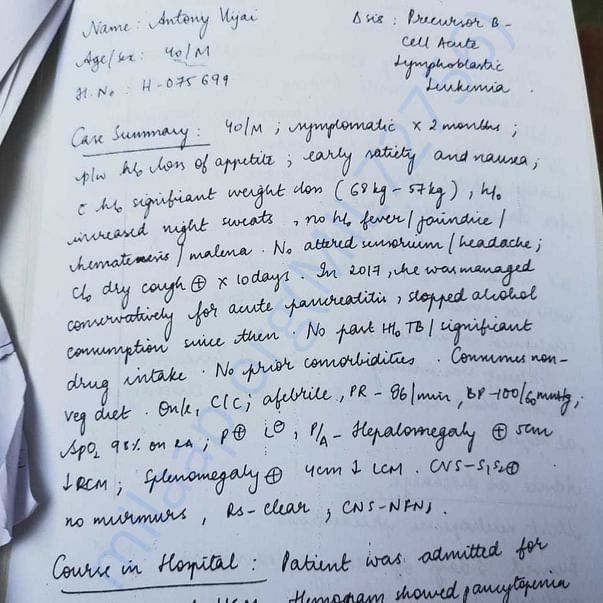 Name : Antony Vijai
Age/sex : 40/M
H.No : H-075699
Δsis : Precursor B-
Cell Acute
Lymphoblastic
Leukemia .
Case Summary : 40/M ; symptomatic x 2 months ;
p/w h/o loss of appetite ; early satiety and nausea ;
c h/o signifiant weight loss (68kg - 57kg) , h/o
increased night sweats , no h/o fever / jaundice /
hematemesis / malena . No altered sensorium / headache ;
c/o dry cough ⊕ x 10 days . In 2017 , he was managed
conservatively for acute pancreatitis , stopped alcohol
consumption since then . No past H/o TB / significant
drug intake . No prior comorbidities . Consumes non-
veg diet . C/C ; afebrile , PR - 86/min , BP - 100/60 mmHg ;
SpO2 98% on RA ; P⊕ L⊖ ; P/A - Hepatomegaly ⊕ 5cm
↓ RCM ; Splenomegaly ⊕ 4cm ↓ LCM . CVS - S1S2⊕
no murmurs , RS - clear ; CNS - NFND .
Course in Hospital : Patient was admitted for
Hemogram showed pancytopenia
milaap.org